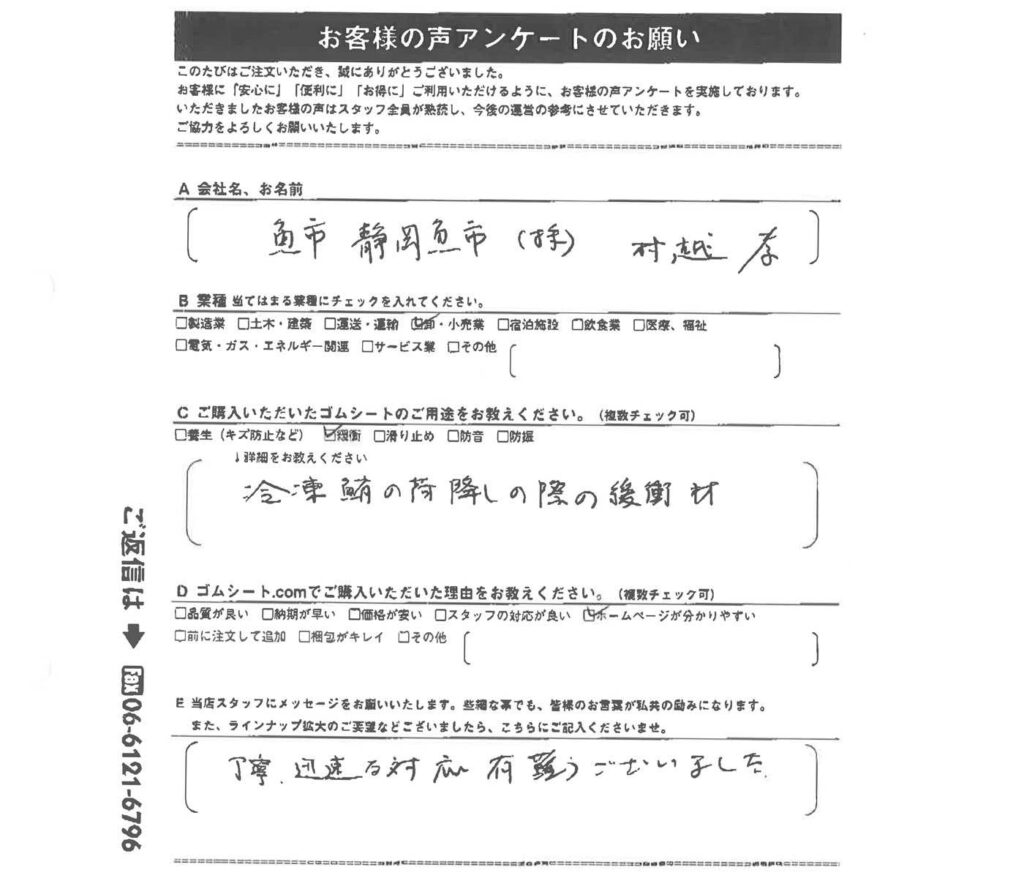 お客様の声アンケートのお願い
このたびはご注文いただき、誠にありがとうございました。
お客様に「安心に」「便利に」「お得に」ご利用いただけるように、お客様の声アンケートを実施しております。
いただきましたお客様の声はスタッフ全員が熟読し、今後の運営の参考にさせていただきます。
ご協力をよろしくお願いいたします。
A 会社名、お名前
魚市 静岡魚市（株） 村越 孝
B 業種 当てはまる業種にチェックを入れてください。
□製造業 □土木・建築 □運送・運輸 ☑卸・小売業 □宿泊施設 □飲食業 □医療、福祉
□電気・ガス・エネルギー関連 □サービス業 □その他
C ご購入いただいたゴムシートのご用途をお教えください。（複数チェック可）
□養生（キズ防止など） ☑緩衝 □滑り止め □防音 □防振
↓詳細をお教えください
冷凍鮪の荷降しの際の緩衝材
D ゴムシート.comでご購入いただいた理由をお教えください。（複数チェック可）
□品質が良い □納期が早い □価格が安い □スタッフの対応が良い ☑ホームページが分かりやすい
□前に注文して追加 □梱包がキレイ □その他
E 当店スタッフにメッセージをお願いいたします。些細な事でも、皆様のお言葉が私共の励みになります。
また、ラインナップ拡大のご要望などございましたら、こちらにご記入くださいませ。
丁寧、迅速な対応 有難うございました
ご返信は➡FAX06-6121-6796